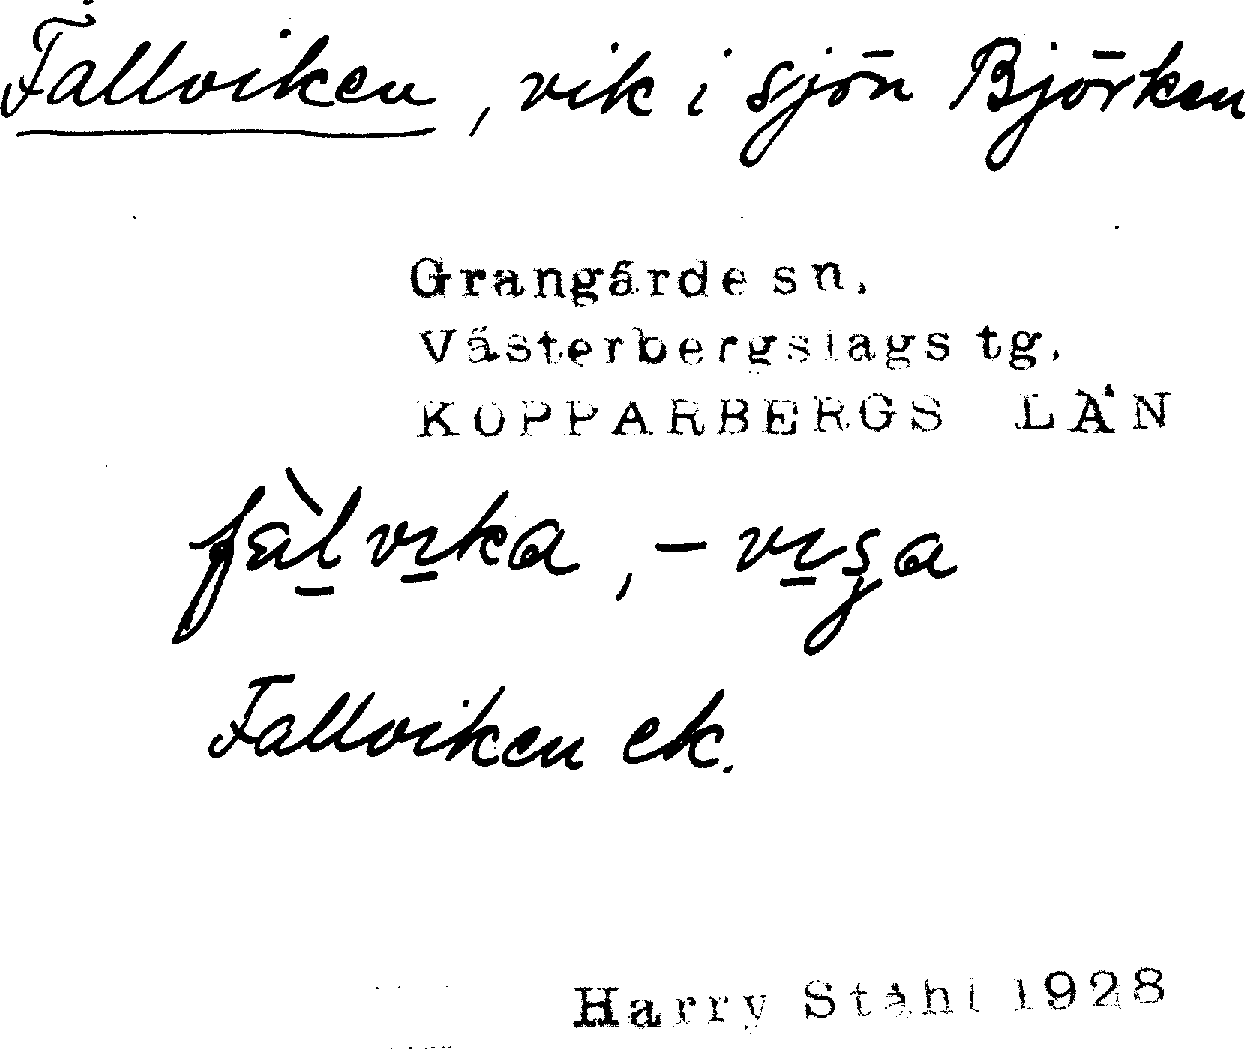 Fallviken, vik i sjön Björken
Grangärde sn.
Västerbergslags tg.
KOPPARBERGS LÄN
fàl̠vi̠ka, -vi̠ʒa
Fallviken ek.
Harry Ståhl 1928